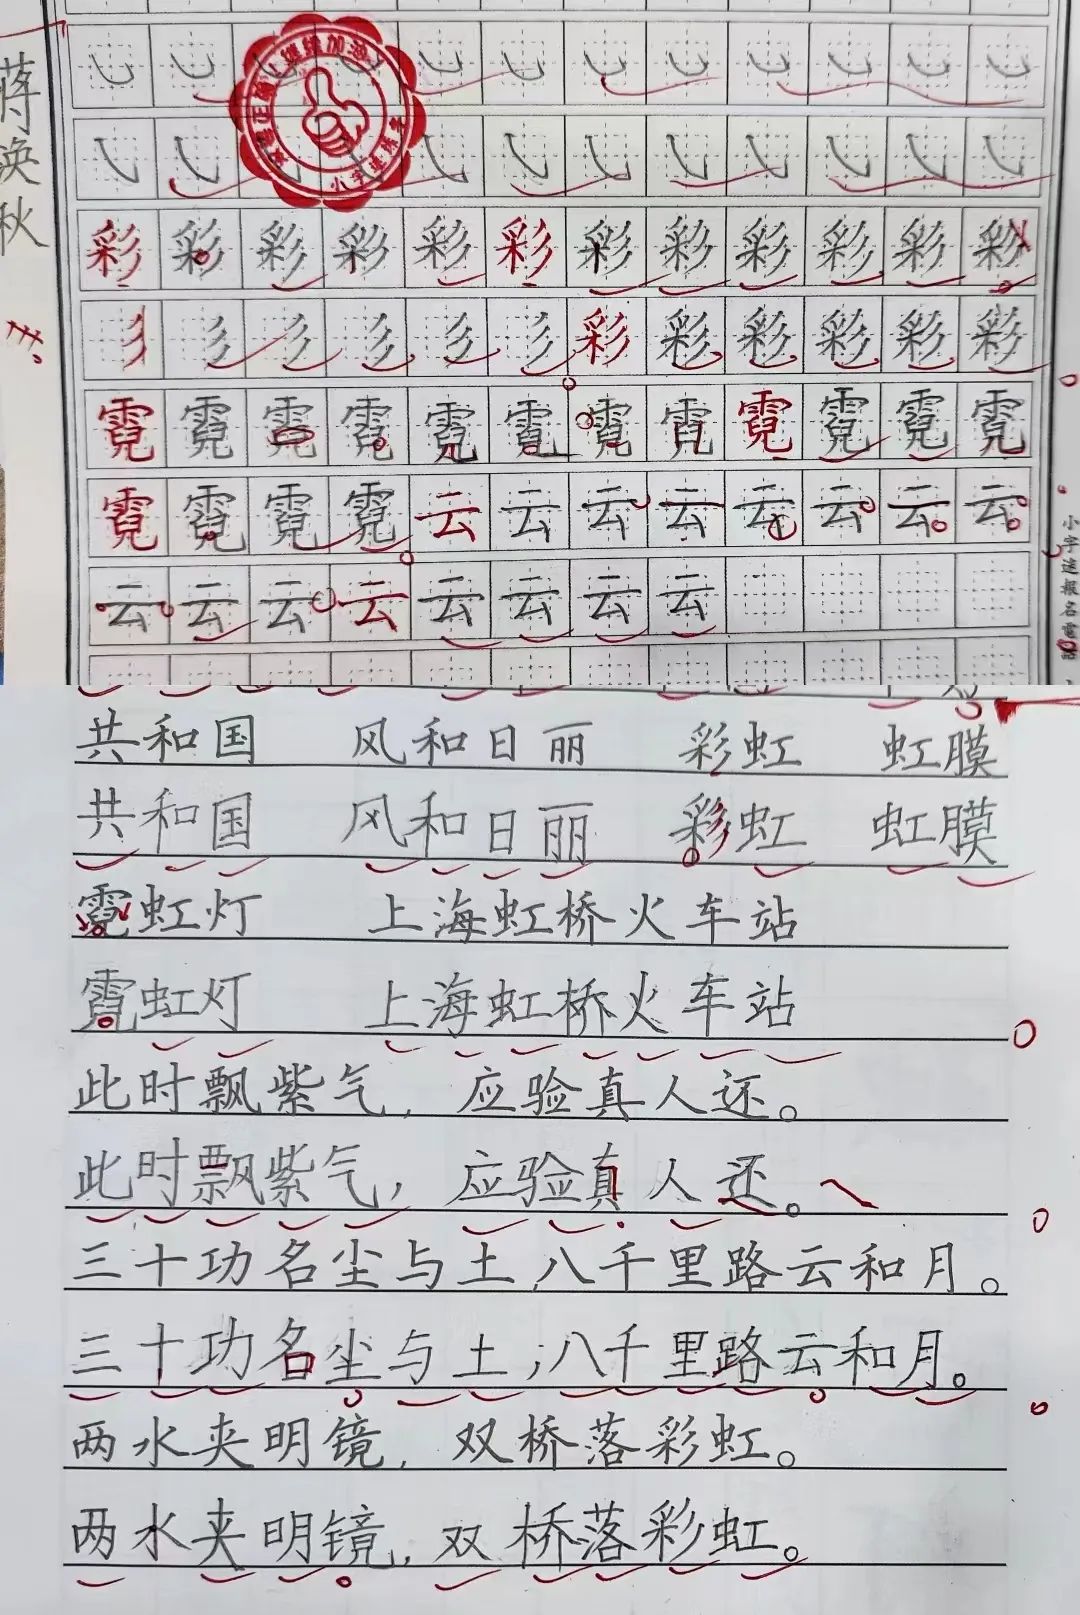 蒋涣秋
彩彩彩彩彩彩彩彩彩彩彩彩
彡彡彡彡彡彡彩彩彩彩彩彩
霓霓霓霓霓霓霓霓霓霓霓霓
霓霓霓霓云云云云云云云云
云云云云云云云云
共和国 风和日丽 彩虹 虹膜
共和国 风和日丽 彩虹 虹膜
霓虹灯 上海虹桥火车站
霓虹灯 上海虹桥火车站
此时飘紫气，应验真人还。
此时飘紫气，应验真人还。
三十功名尘与土，八千里路云和月。
三十功名尘与土，八千里路云和月。
两水夹明镜，双桥落彩虹。
两水夹明镜，双桥落彩虹。